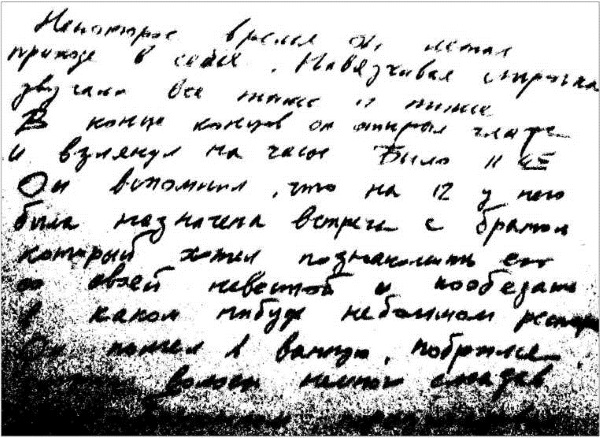 Некоторое время он лежал
приходя в себя. Навязчивая строчка
звучала все тише и тише
В конце концов он открыл глаза
и взглянул на часы Было 11 45
Он вспомнил, что на 12 у него
была назначена встреча с братом
который хотел познакомить его
со своей невестой и пообедать
в каком нибудь небольшом
Он пошел в ванную, побрился
волосы